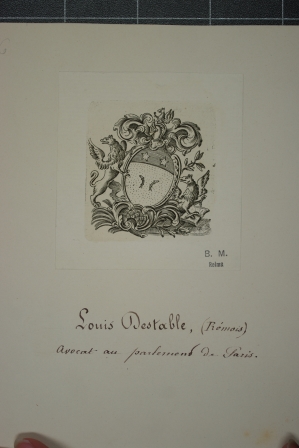 B. M.
Reims
Louis Destable, (Rémois)
Avocat au parlement de Paris.